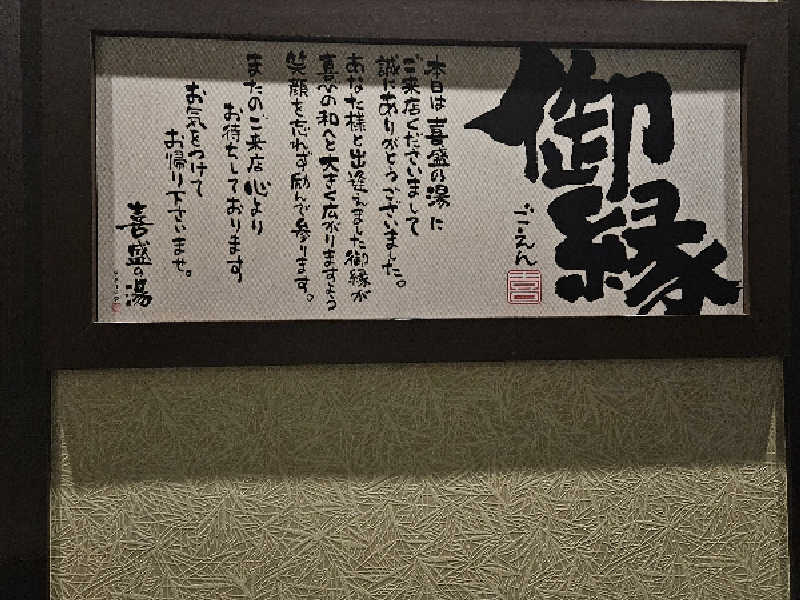 御縁
ごえん
喜
本日は喜盛の湯に
ご来店くださいまして
誠にありがとうございました。
あなた様と出逢えました御縁が
喜びの和へと大きく広がりますよう
笑顔を忘れず励んで参ります。
またのご来店心より
お待ちしております
お気をつけて
お帰り下さいませ。
喜盛の湯